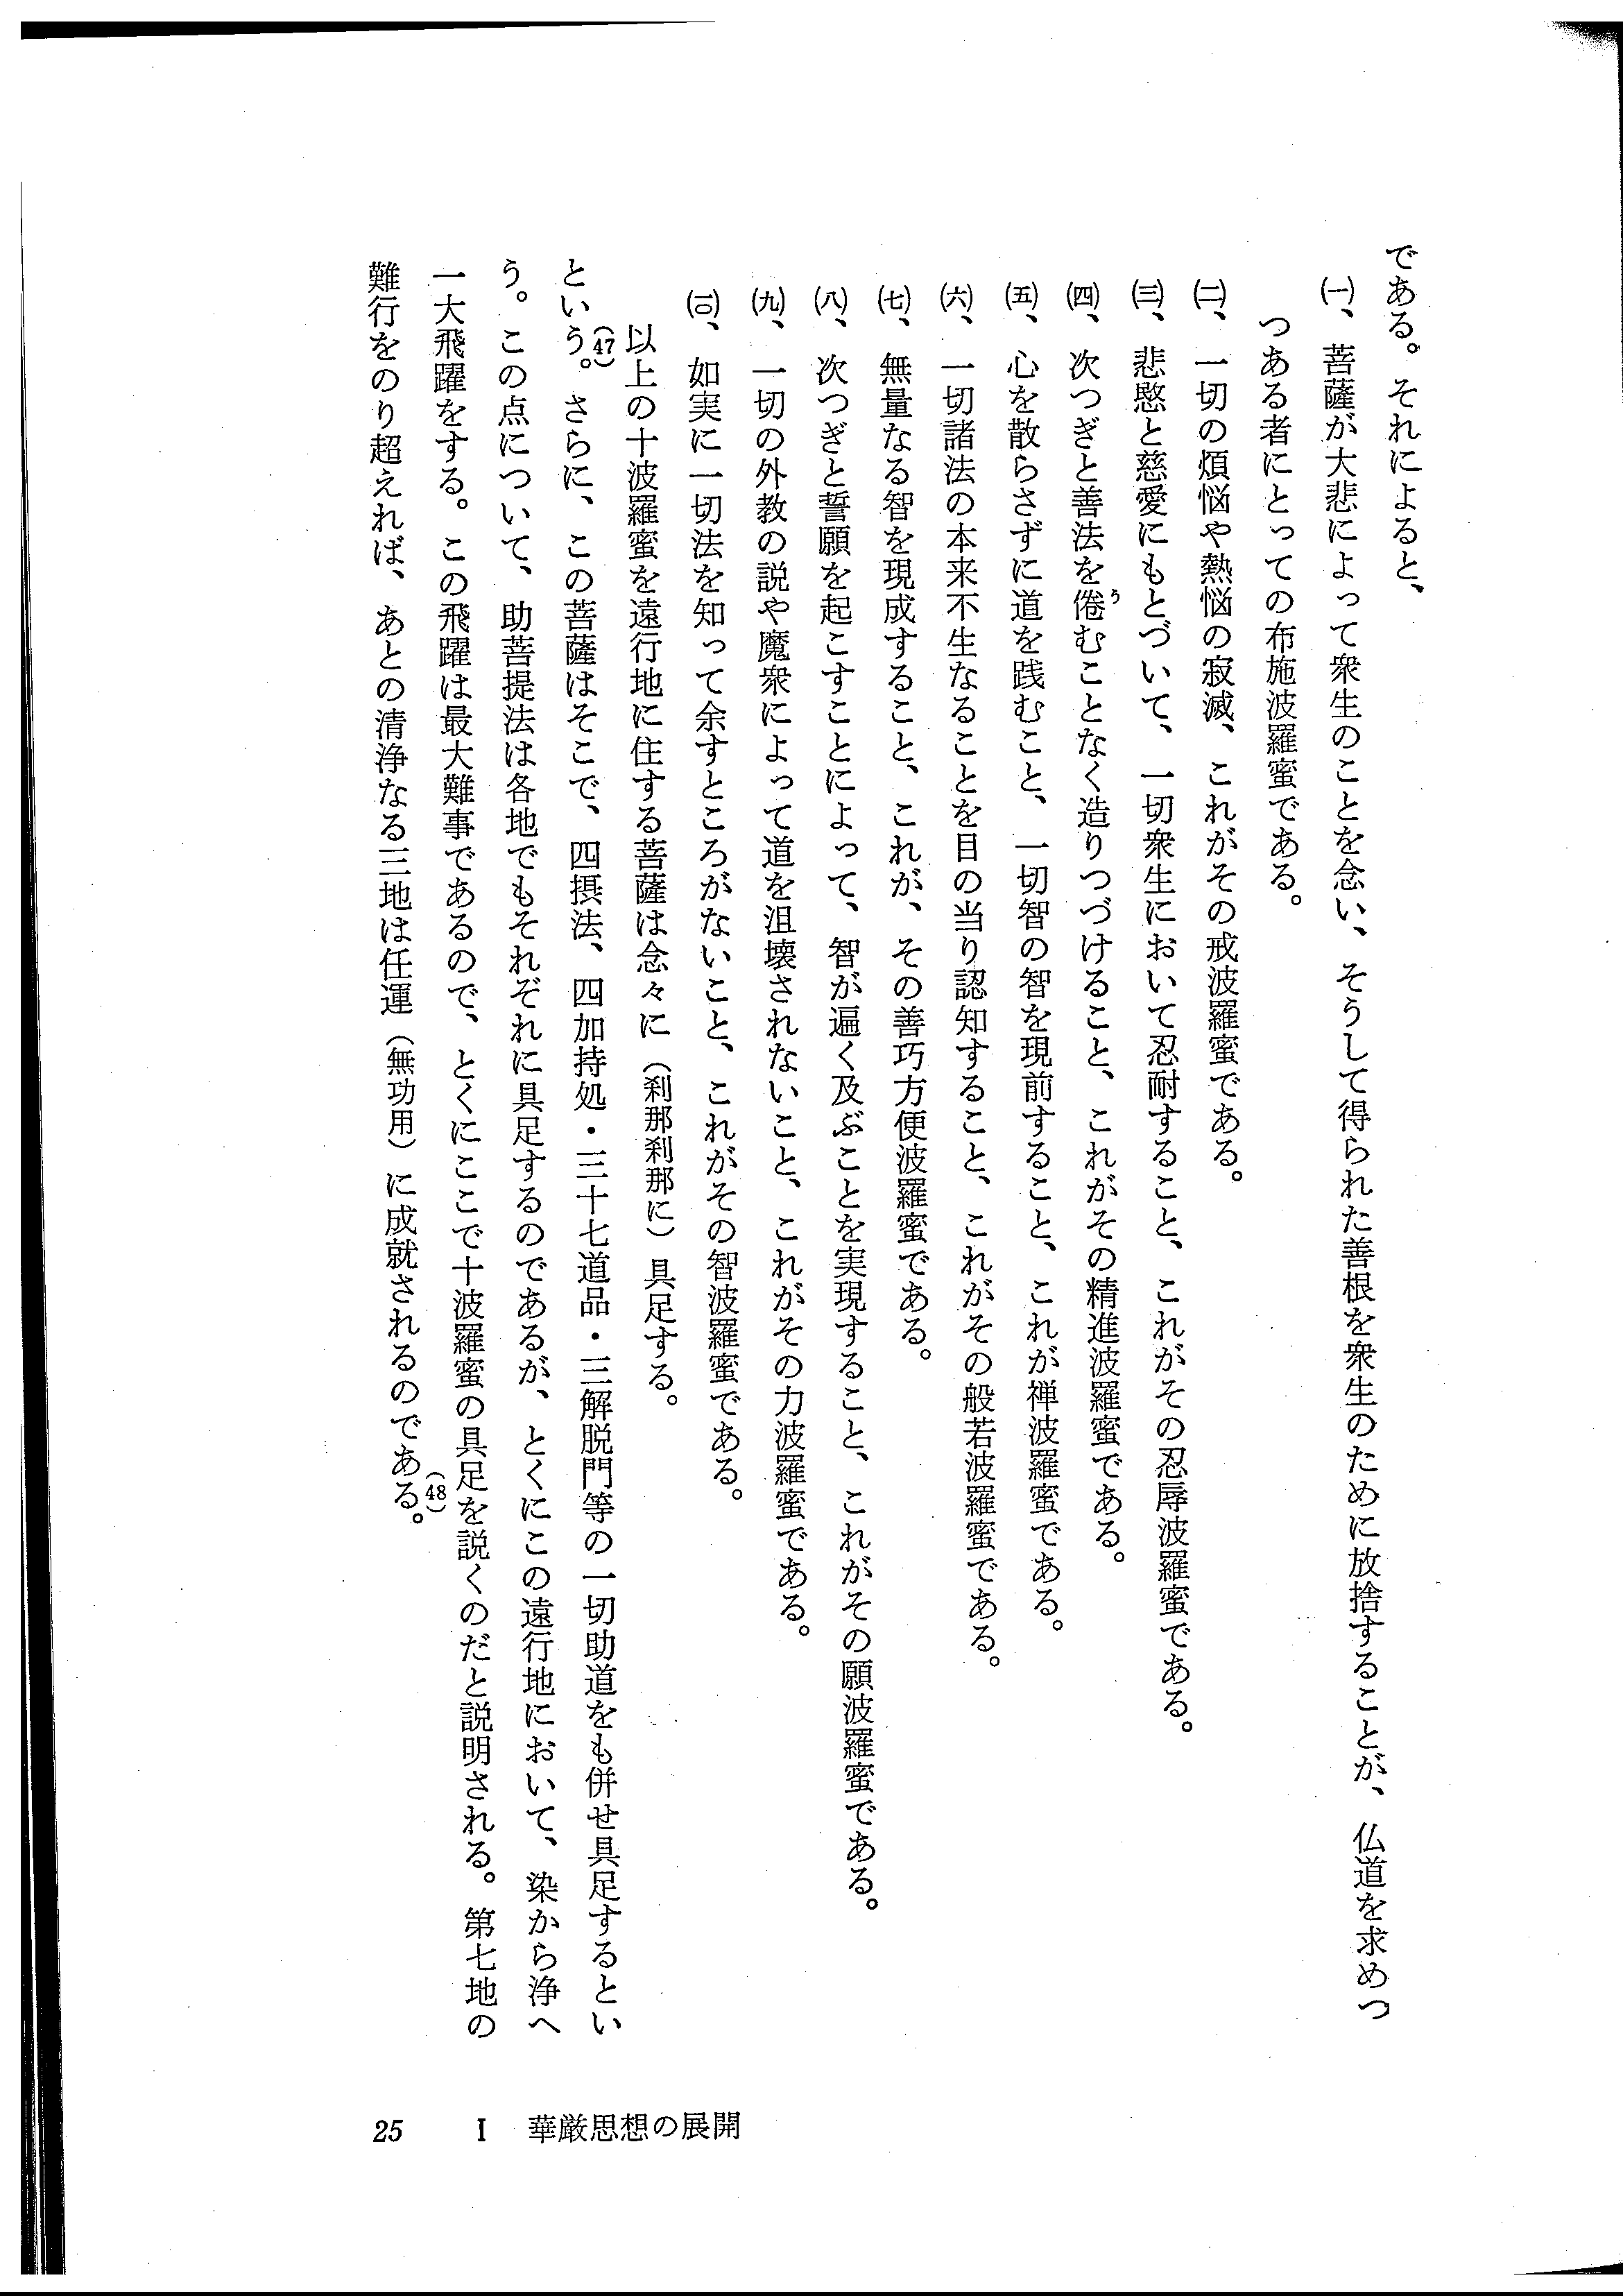 である。それによると、
㈠、菩薩が大悲によって衆生のことを念い、そうして得られた善根を衆生のために放捨することが、仏道を求めつ
つある者にとっての布施波羅蜜である。
㈡、一切の煩悩や熱悩の寂滅、これがその戒波羅蜜である。
㈢、悲愍と慈愛にもとづいて、一切衆生において忍耐すること、これがその忍辱波羅蜜である。
㈣、次つぎと善法を倦むことなく造りつづけること、これがその精進波羅蜜である。
う
㈤、心を散らさずに道を践むこと、一切智の智を現前すること、これが禅波羅蜜である。
㈥、一切諸法の本来不生なることを目の当り認知すること、これがその般若波羅蜜である。
㈦、無量なる智を現成すること、これが、その善巧方便波羅蜜である。
㈧、次つぎと誓願を起こすことによって、智が遍く及ぶことを実現すること、これがその願波羅蜜である。
㈨、一切の外教の説や魔衆によって道を沮壊されないこと、これがその力波羅蜜である。
(一〇)、如実に一切法を知って余すところがないこと、これがその智波羅蜜である。
以上の十波羅蜜を遠行地に住する菩薩は念々に（刹那刹那に）具足する。
という。(47)さらに、この菩薩はそこで、四摂法、四加持処・三十七道品・三解脱門等の一切助道をも併せ具足するとい
う。この点について、助菩提法は各地でもそれぞれに具足するのであるが、とくにこの遠行地において、染から浄へ
一大飛躍をする。この飛躍は最大難事であるので、とくにここで十波羅蜜の具足を説くのだと説明される。第七地の
難行をのり超えれば、あとの清浄なる三地は任運（無功用）に成就されるのである。(48)
25 I 華厳思想の展開